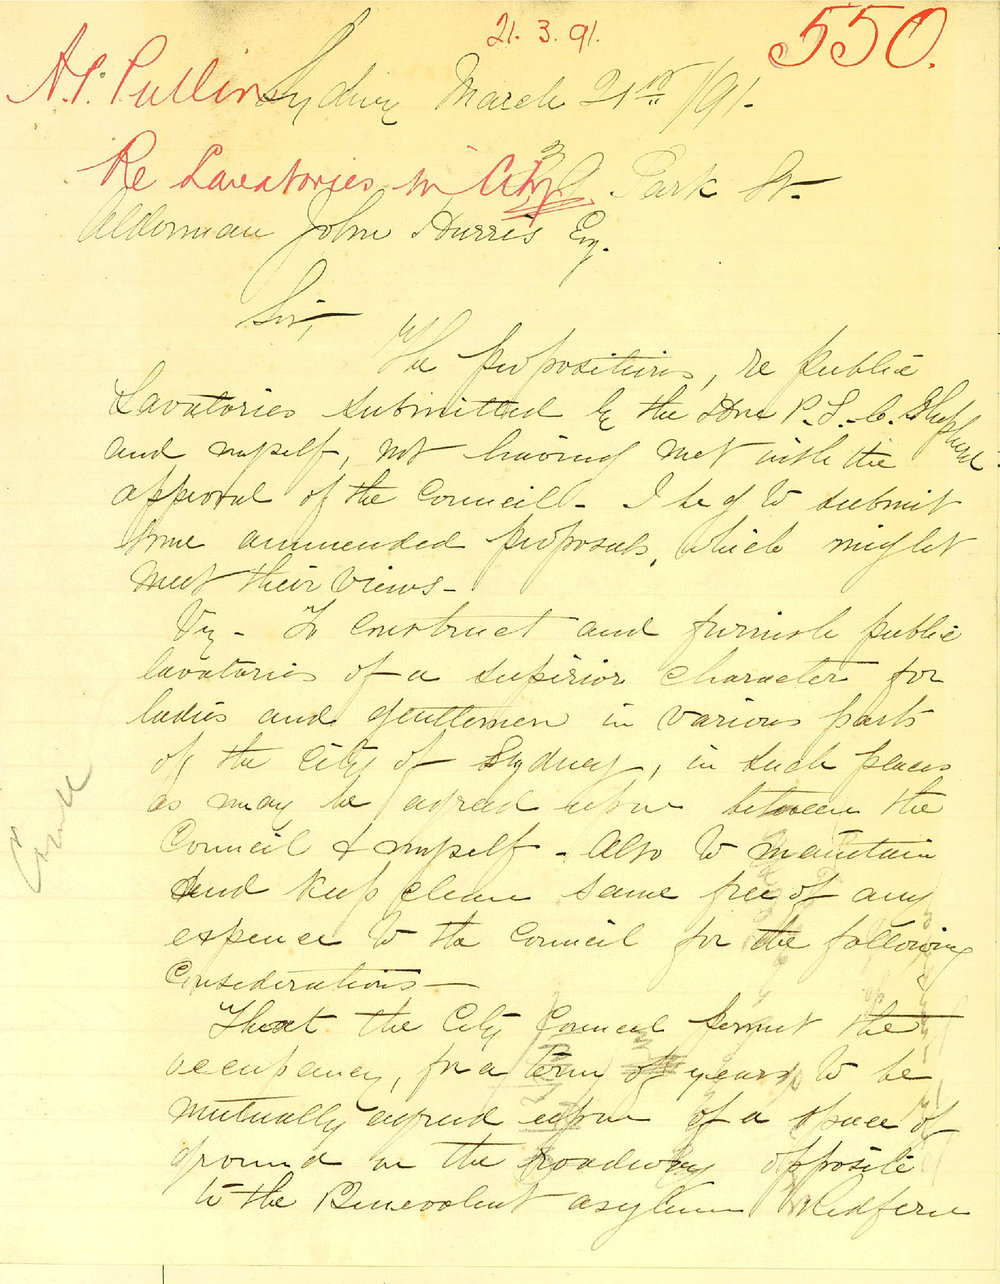 21. 3. 91.
550.
A. P. Pullin
Sydney March 21st /91.
Re Lavatories in City
Park St.
Alderman John Harris Esq.
Sir,
The propositions, re public
Lavatories submitted by the Hon P. L. C. Shepherd
and myself, not having met with the
approval of the Council - I beg to submit
some ammended proposals, which might
meet their views -
Viz - To construct and furnish public
lavatories of a superior character for
ladies and gentlemen in various parts
of the City of Sydney, in such places
as may be agreed upon between the
Council & myself - Also to maintain
and keep clean same free of any
expence to the Council for the following
Considerations -
That the City Council permit the
occupancy, for a term of years to be
mutually agreed upon of a space of
ground in the roadway opposite
to the Benevolent asylum Redfern